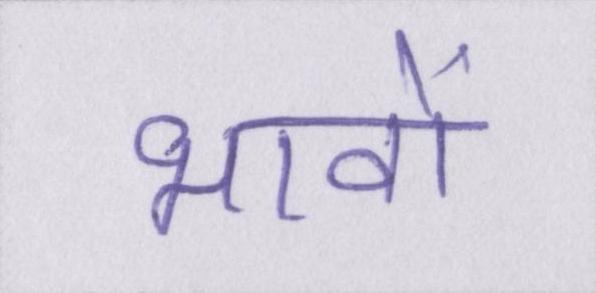 भावों